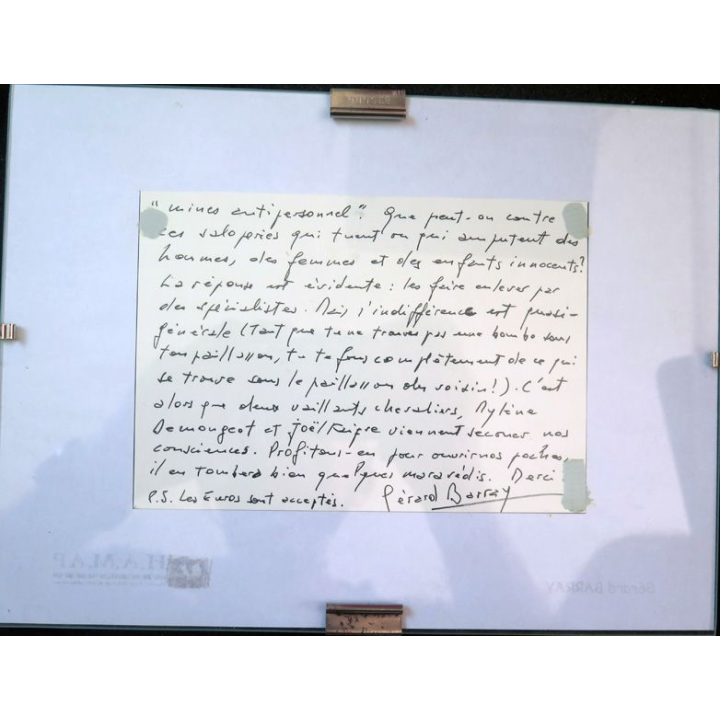 "mines antipersonnel". Que peut-on contre
ces saloperies qui tuent ou qui amputent des
hommes, des femmes et des enfants innocents?
La réponse est évidente : les faire enlever par
des spécialistes. Mais l'indifférence est quasi-
générale (Tant que tu ne trouves pas une bombe sous
ton paillasson, tu te fous complètement de ce qui
se trouve sous le paillasson du voisin!). C'est
alors que deux vaillants chevaliers, Mylène
Demongeot et Joël viennent secouer nos
consciences. Profitons-en pour ouvrir nos poches,
il en tombera bien quelques maravédis. Merci
P.S. Les Euros sont acceptés. Gérard Barray
H.A.M.A.P
Gérard BARRAY